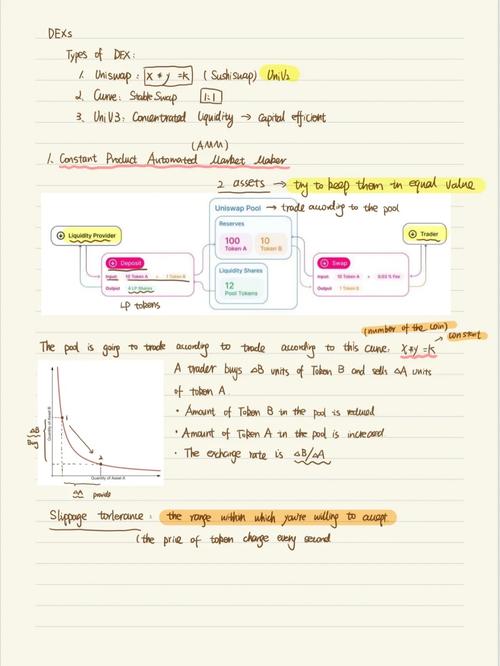 DEXs
Types of DEX:
1. Uniswap: x * y = k (Sushiswap) UniV2
2. Curve: StableSwap 1:1
3. UniV3: Concentrated Liquidity → Capital efficient
(AMM)
1. Constant Product Automated Market Maker
2 assets → try to keep them in equal value
Uniswap Pool → trade according to the pool
Liquidity Provider
Reserves
Trader
100 Token A
10 Token B
Deposit
Swap
Input 10 Token A + 1 Token B
Output 4 LP Shares
Liquidity Shares
Input 10 Token A + 0.03 % Fee
Output 1 Token B
12 Pool Tokens
LP tokens
(number of the coin)
constant
The pool is going to trade according to trade according to this curve: x*y=k
A trader buys ΔB units of Token B and sells ΔA units
of token A.
• Amount of Token B in the pool is reduced
• Amount of Token A in the pool is increased
• The exchange rate is ΔB/ΔA
Quantity of Asset B
1
2
ΔB
Buy
Quantity of Asset A
ΔA provide
Slippage torlerance: the range within which you're willing to accept.
(the price of token change every second